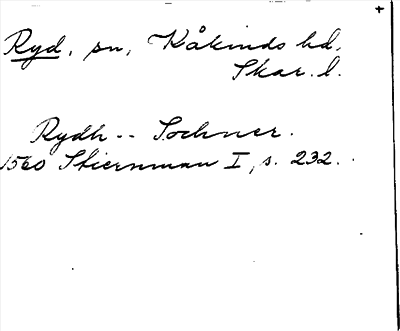 Ryd, sn, Kåkinds hd,
Skar. l.
Rydh -- Sochner.
1560 Stiernman I, s. 232.